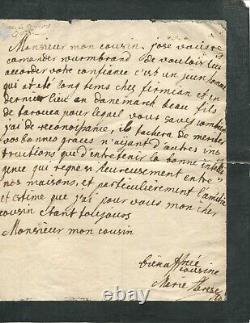 Monsieur mon cousin j'ose vous re
comander wurmbrand de vouloir lui
accorder votre confiance c'est un jeun home
qui at eté long tems chez firmian et en
dernier lieu an danemarck beau fils
de tarouca pour lequel vous savez combien
j'ai de reconoissance, il tachera de meriter
vos bonnes graces n'ayant d'autres ins
tructions que d'entretenir la bonne intelli
gence qui regne si heureusement entre
nos maisons, et particulierement l'amitie
et estime que j'ai pour vous mon cher
cousin etant toujours
Monsieur mon cousin
bien affnée
cousine
Marie Therese